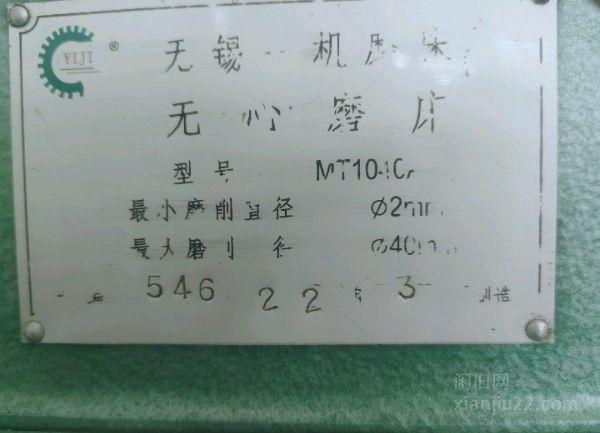 YIJI ®
无锡一机
无心磨床
型号 MT1040
最小磨削直径 Ø2mm
最大磨削直径 Ø40mm
546 22 3 制造
闲旧网
xianjiu22.com